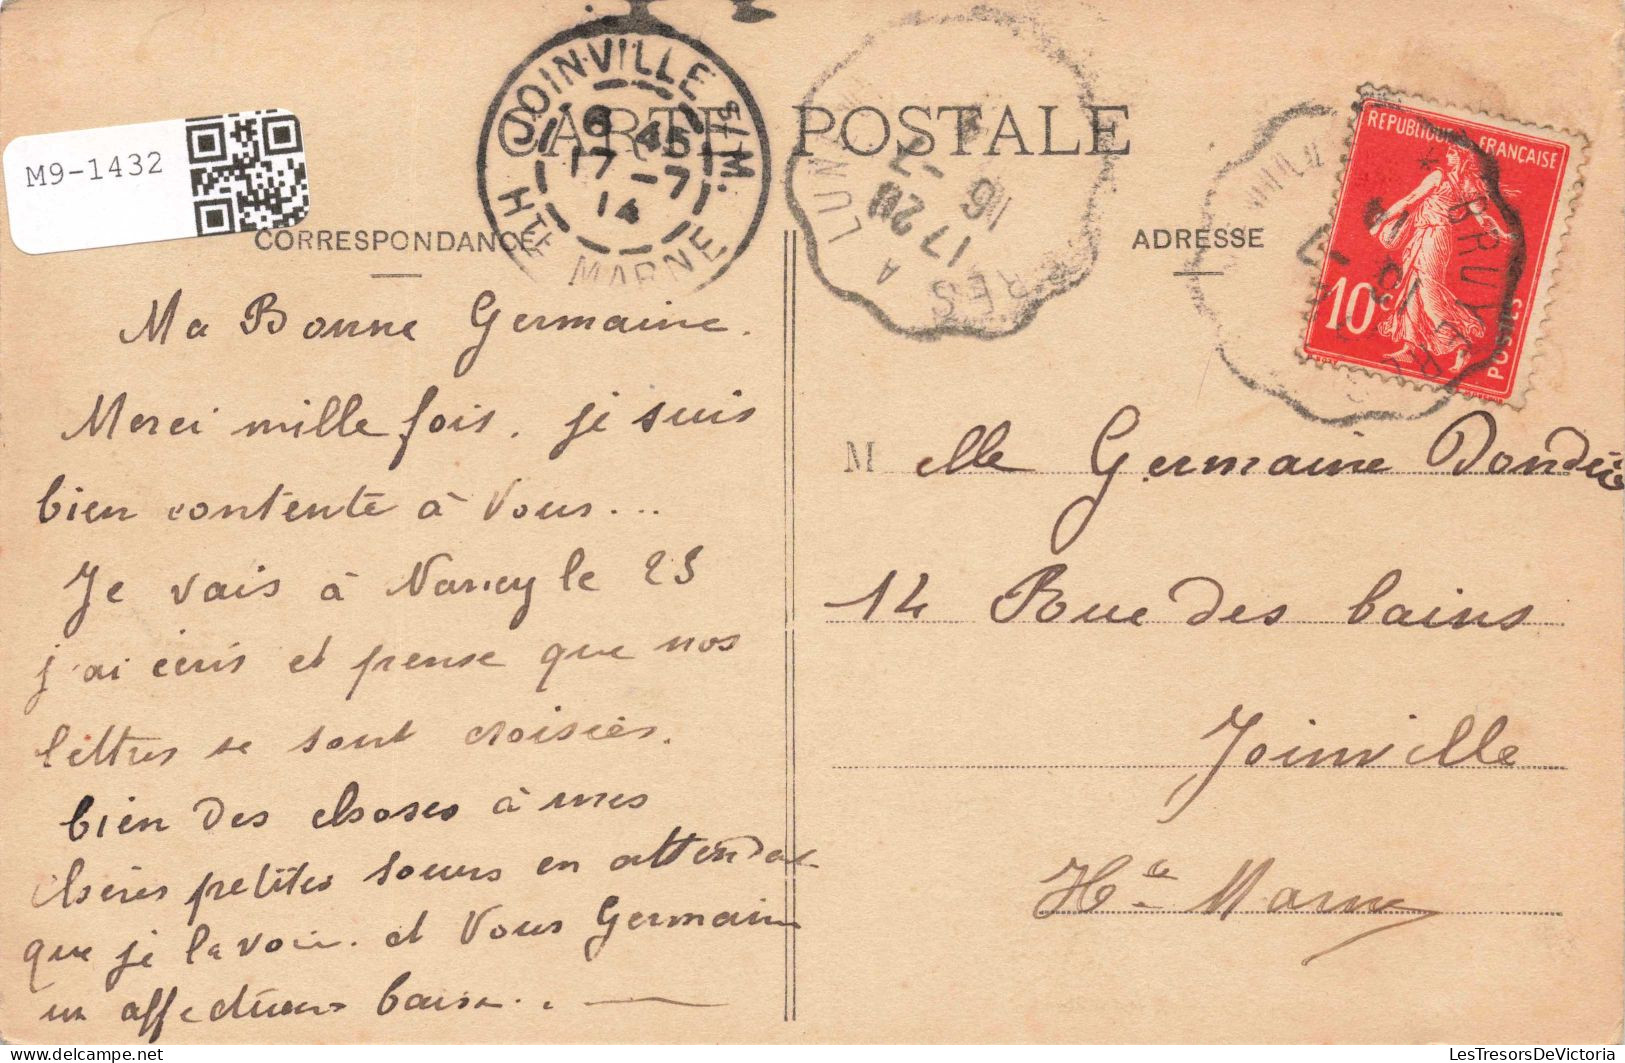 M9-1432
CARTE POSTALE
CORRESPONDANCE
ADRESSE
JOINVILLE S/M.
6 45
17-7
14
Hte MARNE
LUN
A
1720
16 -7
RES
BRUYER
REPUBLIQUE FRANÇAISE
10c
POSTES
Ma Bonne Germaine.
Merci mille fois. je suis
bien contente à Vous...
Je vais à Nancy le 25
j'ai écris et pense que nos
lettres se sont croisiés.
bien des choses à mes
chères petites soeurs en attendat
que je la voir. et Vous Germain
un affectueux baiser..
M elle Germaine
14 Rue des bains
Joinville
Hte Marne
LesTresorsDeVictoria